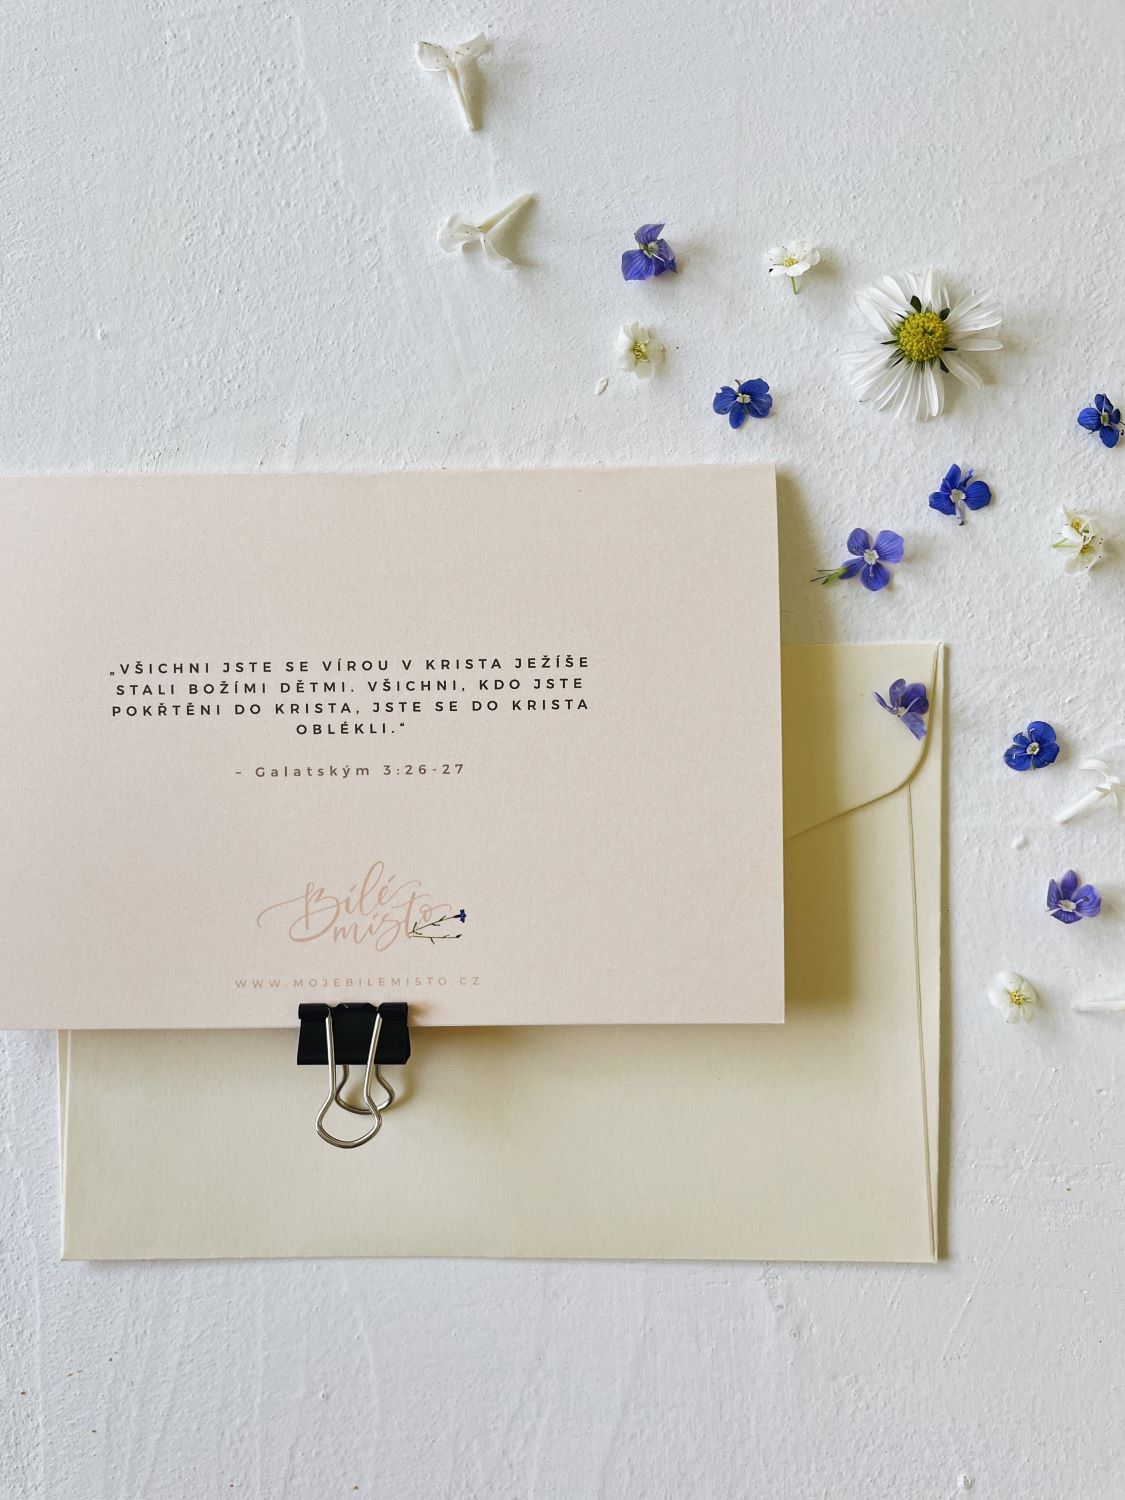 „VŠICHNI JSTE SE VÍROU V KRISTA JEŽÍŠE
STALI BOŽÍMI DĚTMI. VŠICHNI, KDO JSTE
POKŘTĚNI DO KRISTA, JSTE SE DO KRISTA
OBLÉKLI.“
– Galatským 3:26-27
Bílé
místo
WWW.MOJEBILEMISTO.CZ